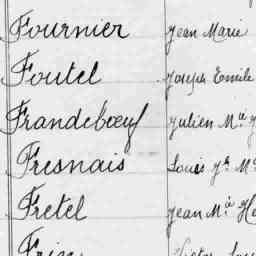 Fournier Jean Marie
Foutel Joseph Emile
Frandebœuf Julien Mie
Fresnais Louis
Fretel Jean Mie